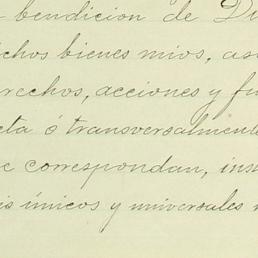 bendicion de Di
ichos bienes mios, as
rechos, acciones y fu
cta ó transversalmente
e correspondan, ins
is únicos y universales